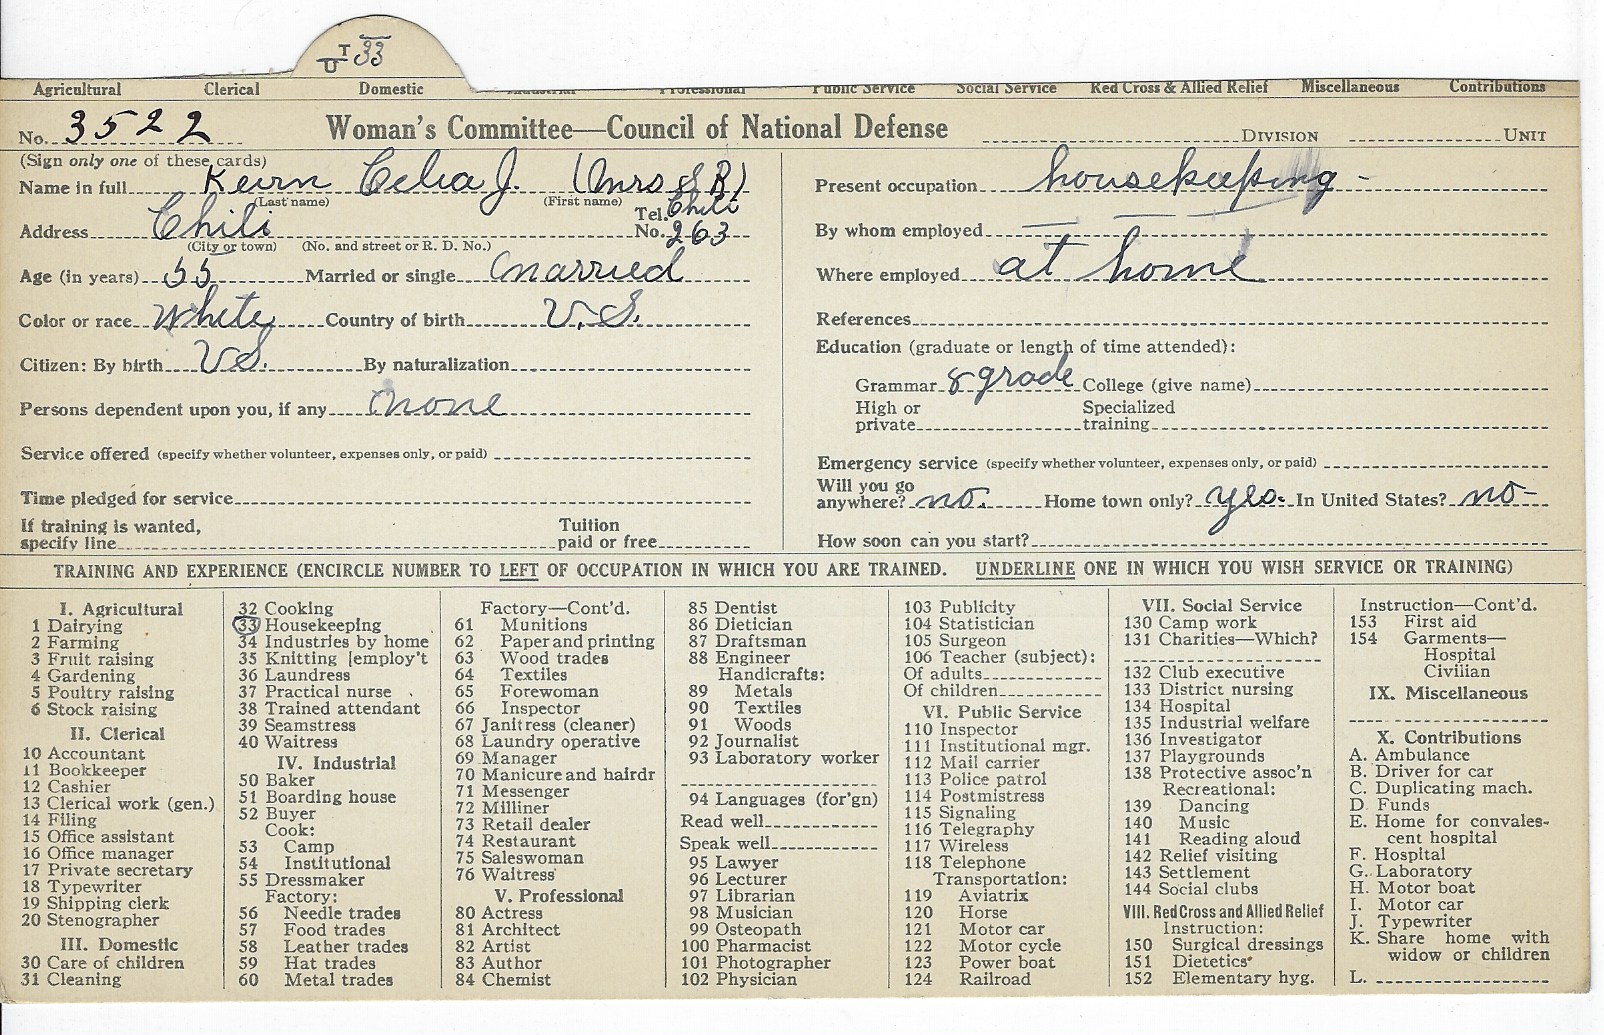 T 33
U
Agricultural Clerical Domestic Industrial Professional Public Service Social Service Red Cross & Allied Relief Miscellaneous Contributions
No. 3522 Woman's Committee—Council of National Defense DIVISION UNIT
(Sign only one of these cards)
Name in full Keirn Celia J. (Mrs S R)
(Last name) (First name)
Address Chili Tel. No. Chili 263
(City or town) (No. and street or R. D. No.)
Age (in years) 55 Married or single married
Color or race White Country of birth U.S.
Citizen: By birth US. By naturalization
Persons dependent upon you, if any none
Service offered (specify whether volunteer, expenses only, or paid)
Time pledged for service
If training is wanted, specify line Tuition paid or free
Present occupation housekeeping -
By whom employed
Where employed at home
References
Education (graduate or length of time attended):
Grammar 8 grade College (give name)
High or private Specialized training
Emergency service (specify whether volunteer, expenses only, or paid)
Will you go anywhere? no. Home town only? yes. In United States? no-
How soon can you start?
TRAINING AND EXPERIENCE (ENCIRCLE NUMBER TO LEFT OF OCCUPATION IN WHICH YOU ARE TRAINED. UNDERLINE ONE IN WHICH YOU WISH SERVICE OR TRAINING)
I. Agricultural
1 Dairying
2 Farming
3 Fruit raising
4 Gardening
5 Poultry raising
6 Stock raising
II. Clerical
10 Accountant
11 Bookkeeper
12 Cashier
13 Clerical work (gen.)
14 Filing
15 Office assistant
16 Office manager
17 Private secretary
18 Typewriter
19 Shipping clerk
20 Stenographer
III. Domestic
30 Care of children
31 Cleaning
32 Cooking
33 Housekeeping
34 Industries by home
35 Knitting [employ't
36 Laundress
37 Practical nurse
38 Trained attendant
39 Seamstress
40 Waitress
IV. Industrial
50 Baker
51 Boarding house
52 Buyer
Cook:
53 Camp
54 Institutional
55 Dressmaker
Factory:
56 Needle trades
57 Food trades
58 Leather trades
59 Hat trades
60 Metal trades
Factory—Cont'd.
61 Munitions
62 Paper and printing
63 Wood trades
64 Textiles
65 Forewoman
66 Inspector
67 Janitress (cleaner)
68 Laundry operative
69 Manager
70 Manicure and hairdr
71 Messenger
72 Milliner
73 Retail dealer
74 Restaurant
75 Saleswoman
76 Waitress
V. Professional
80 Actress
81 Architect
82 Artist
83 Author
84 Chemist
85 Dentist
86 Dietician
87 Draftsman
88 Engineer
Handicrafts:
89 Metals
90 Textiles
91 Woods
92 Journalist
93 Laboratory worker
94 Languages (for'gn)
Read well
Speak well
95 Lawyer
96 Lecturer
97 Librarian
98 Musician
99 Osteopath
100 Pharmacist
101 Photographer
102 Physician
103 Publicity
104 Statistician
105 Surgeon
106 Teacher (subject):
Of adults
Of children
VI. Public Service
110 Inspector
111 Institutional mgr.
112 Mail carrier
113 Police patrol
114 Postmistress
115 Signaling
116 Telegraphy
117 Wireless
118 Telephone
Transportation:
119 Aviatrix
120 Horse
121 Motor car
122 Motor cycle
123 Power boat
124 Railroad
VII. Social Service
130 Camp work
131 Charities—Which?
132 Club executive
133 District nursing
134 Hospital
135 Industrial welfare
136 Investigator
137 Playgrounds
138 Protective assoc'n
Recreational:
139 Dancing
140 Music
141 Reading aloud
142 Relief visiting
143 Settlement
144 Social clubs
VIII. Red Cross and Allied Relief
Instruction:
150 Surgical dressings
151 Dietetics
152 Elementary hyg.
Instruction—Cont'd.
153 First aid
154 Garments—
Hospital
Civilian
IX. Miscellaneous
X. Contributions
A. Ambulance
B. Driver for car
C. Duplicating mach.
D. Funds
E. Home for convales-
cent hospital
F. Hospital
G. Laboratory
H. Motor boat
I. Motor car
J. Typewriter
K. Share home with
widow or children
L.